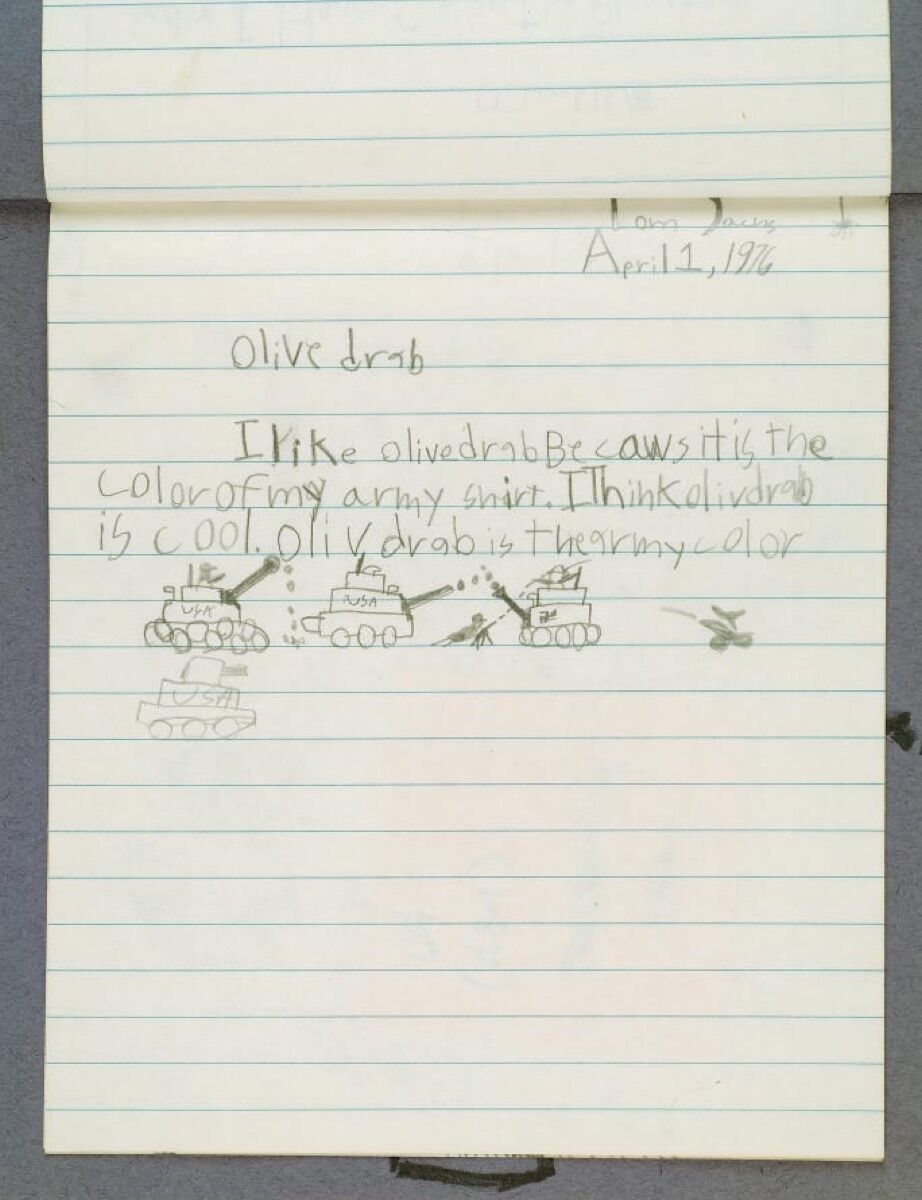 April 1, 1976
Olive drab
I like olivedrab Becawsitis the
color of my army shirt. I Think olivdrab
is cool. oliv drab is thearmy color
USA
USA
USA